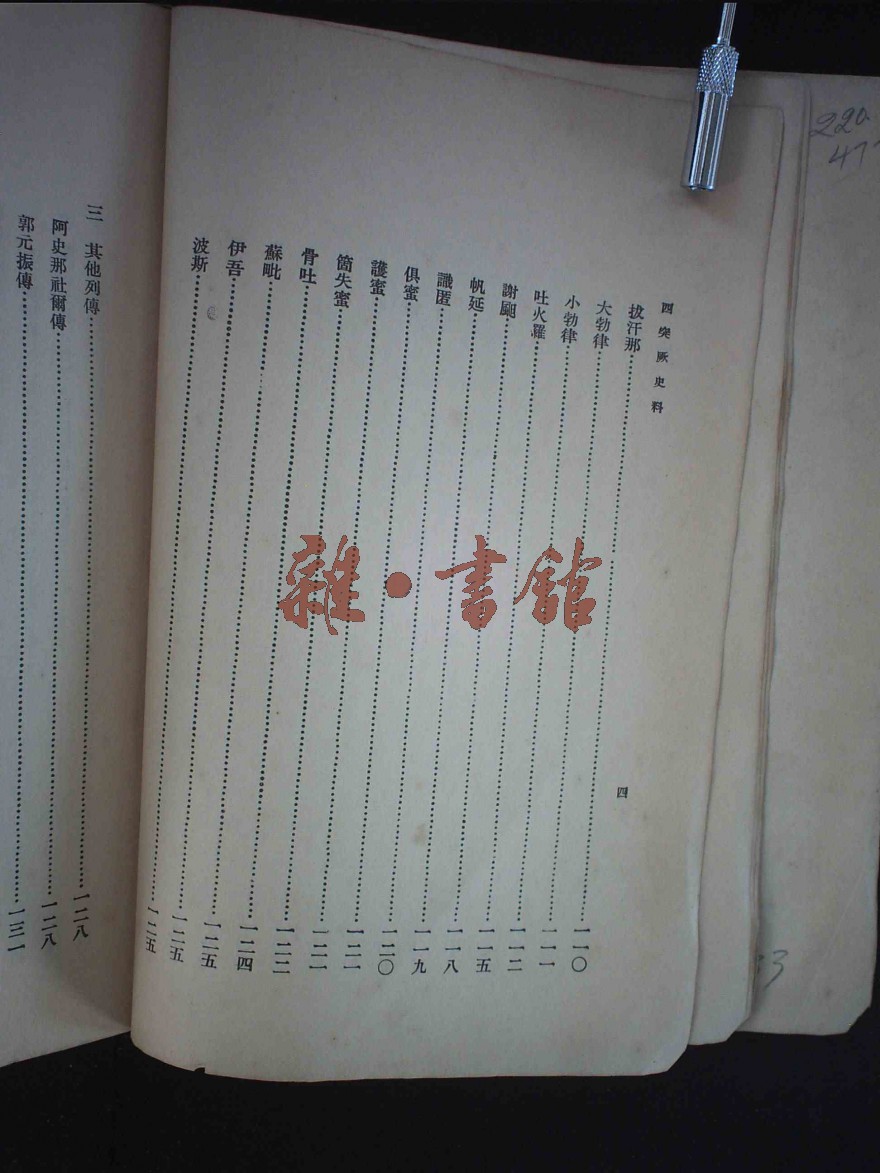 西突厥史料
四
拔汗那……一一〇
大勃律……一一一
小勃律……一一二
吐火羅……一一五
謝䫻……一一八
帆延……一一九
識匿……一二〇
俱蜜……一二一
護蜜……一二一
箇失蜜……一二二
骨吐……一二四
蘇毗……一二五
伊吾……一二五
波斯……一二五
三 其他列傳……一二八
阿史那社爾傳……一二八
郭元振傳……一三一
雜·書館
220
47